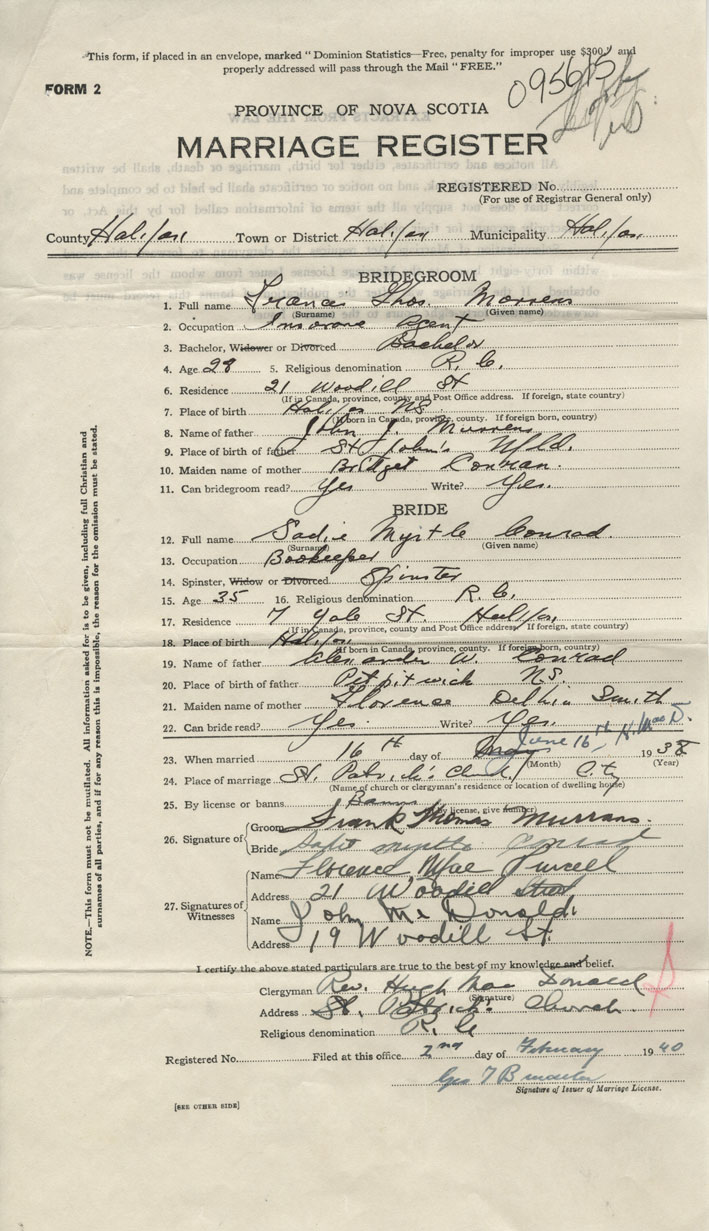 This form, if placed in an envelope, marked "Dominion Statistics—Free, penalty for improper use $300," and
properly addressed will pass through the Mail "FREE."
FORM 2
095615
PROVINCE OF NOVA SCOTIA
MARRIAGE REGISTER
REGISTERED No.
(For use of Registrar General only)
County Halifax Town or District Halifax Municipality Halifax
BRIDEGROOM
1. Full name Francis Thos. Morrens
(Surname) (Given name)
2. Occupation Agent
3. Bachelor, Widower or Divorced Bachelor
4. Age 28 5. Religious denomination R. C.
6. Residence 21 Woodill St
(If in Canada, province, county and Post Office address. If foreign, state country)
7. Place of birth Halifax NS
(If born in Canada, province, county. If foreign born, country)
8. Name of father John J. Murrens
9. Place of birth of father St John's Nfld.
10. Maiden name of mother Bridget Conran.
11. Can bridegroom read? Yes Write? Yes.
BRIDE
12. Full name Sadie Myrtle Conrad
(Surname) (Given name)
13. Occupation Bookeeper
14. Spinster, Widow or Divorced Spinster
15. Age 35 16. Religious denomination R. C.
17. Residence 7 Yale St. Halifax
(If in Canada, province, county and Post Office address If foreign, state country)
18. Place of birth Halifax
(If born in Canada, province, county. If foreign born, country)
19. Name of father Alexander W. Conrad
20. Place of birth of father Petpitwick NS.
21. Maiden name of mother Florence Delhia Smith
22. Can bride read? Yes. Write? Yes.
June 16th, H. MacD.
23. When married 16th day of May 1938
(Month) (Year)
24. Place of marriage St. Patrick's City
(Name of church or clergyman's residence or location of dwelling house)
25. By license or banns Banns
(If by license, give number)
26. Signature of Groom Frank Thomas Murrans.
Bride Sadie Myrtle Conrad
27. Signatures of Witnesses
Name Florence Mae Purcell
Address 21 Woodill Street
Name John McDonald.
Address 19 Woodill St.
I certify the above stated particulars are true to the best of my knowledge and belief.
Clergyman Rev. Hugh MacDonald
(Signature)
Address St. Patrick's Church.
Religious denomination R. C.
Registered No. Filed at this office 2nd day of February 1940
Geo
Signature of Issuer of Marriage License.
[SEE OTHER SIDE]
NOTE.—This form must not be mutilated. All information asked for is to be given, including full Christian and
surnames of all parties, and if for any reason this is impossible, the reason for the omission must be stated.